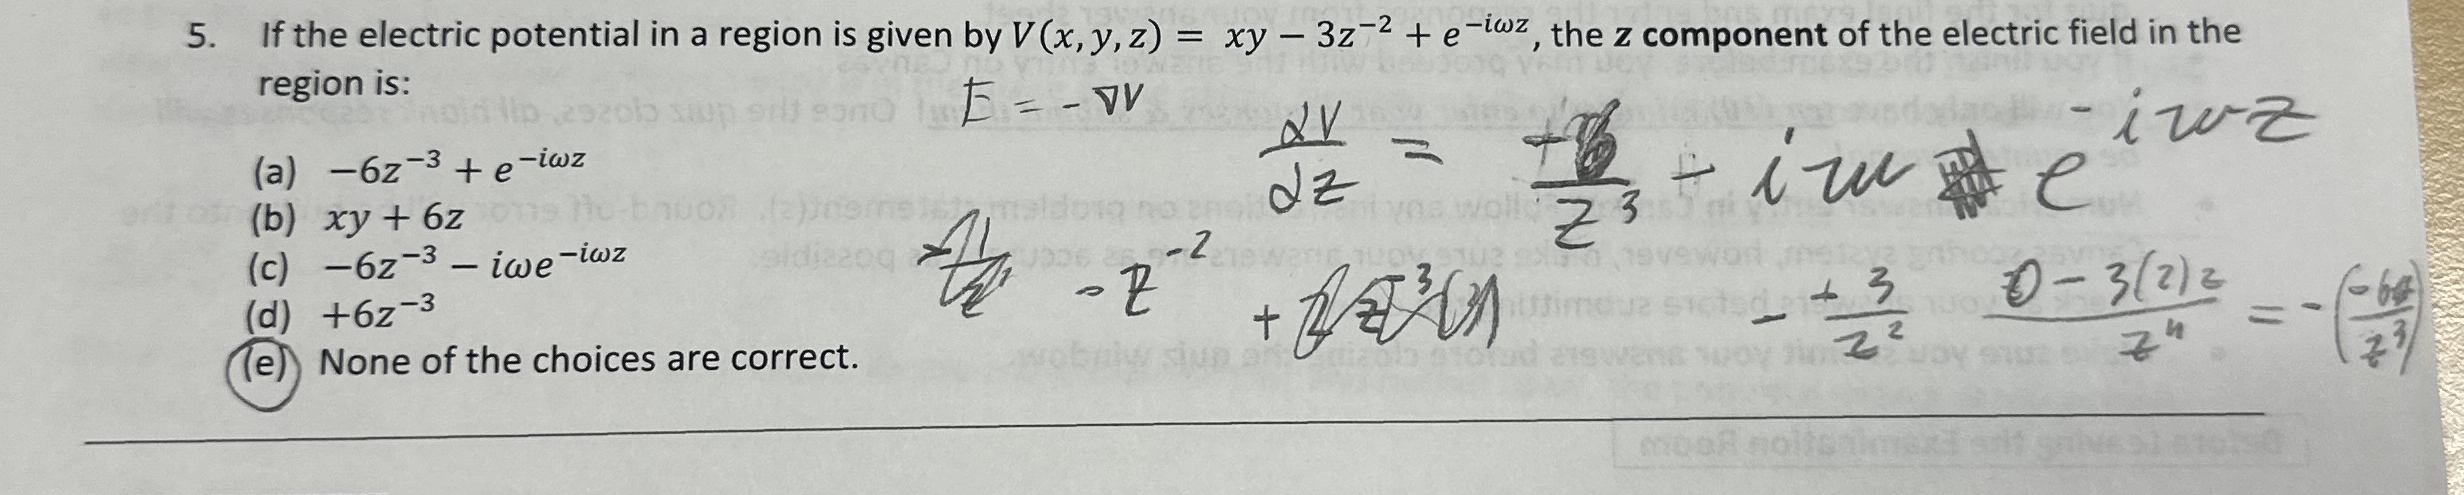 5. If the electric potential in a region is given by V(x, y, z) = xy − 3z⁻² + e^(−iωz), the z component of the electric field in the
region is:
E = - ∇V
dV/dz = +6/z³ - iω e^(-iωz)
(a) −6z⁻³ + e^(−iωz)
(b) xy + 6z
(c) −6z⁻³ − iωe^(−iωz)
(d) +6z⁻³
(e) None of the choices are correct.
- z⁻²
- + 3/z² 0 - 3(2)z/z⁴ = - (-6/z³)